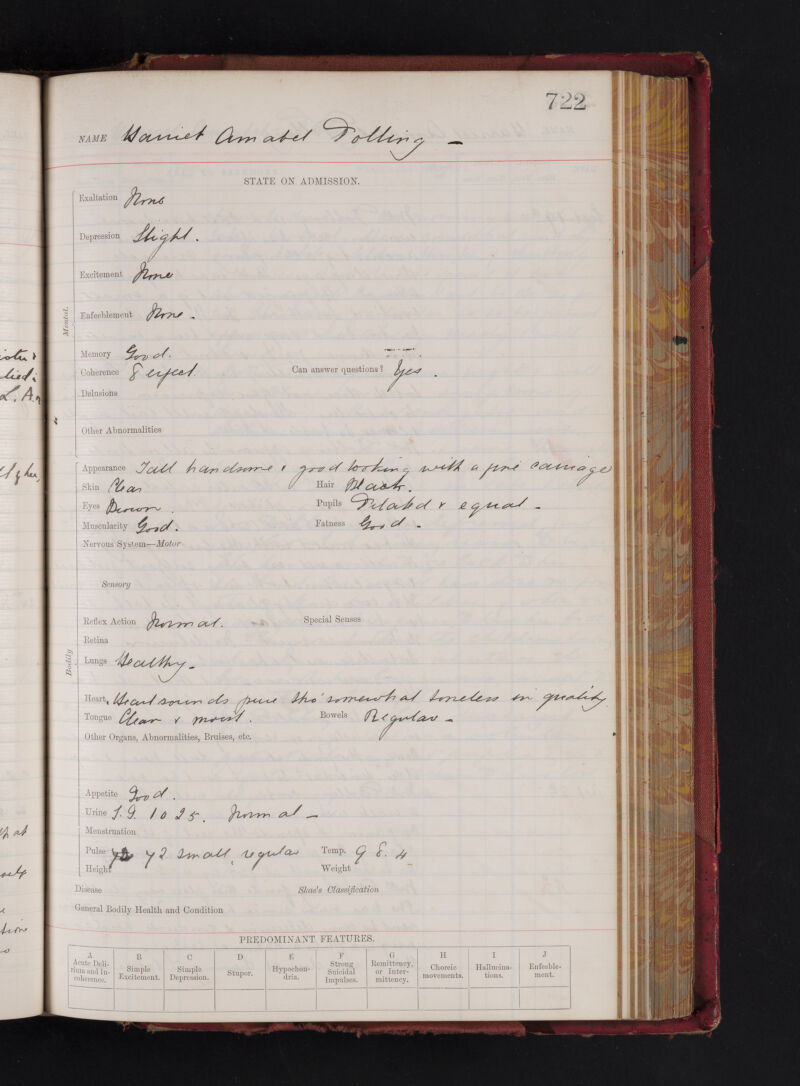 722
NAME Harriet Amabel Dolling -
STATE ON ADMISSION.
Mental.
Exaltation None
Depression Slight.
Excitement None
Enfeeblement None.
Memory Good.
Coherence Perfect Can answer questions? Yes.
Delusions
Other Abnormalities
Bodily
Appearance Tall handsome & good looking with a fine carriage
Skin Clear Hair Black.
Eyes Brown. Pupils Dilated & equal -
Muscularity Good. Fatness Good -
Nervous System—Motor
Sensory
Reflex Action Normal. Special Senses
Retina
Lungs Healthy -
Heart. Heart sounds pure tho' somewhat toneless in quality.
Tongue Clean & moist. Bowels Regular -
Other Organs, Abnormalities, Bruises, etc.
Appetite Good.
Urine S.G. 1025. Normal -
Menstruation
Pulse 72 small, regular Temp. 98.4
Height Weight
Disease Skae's Classification
General Bodily Health and Condition
PREDOMINANT FEATURES.
A B C D E F G H I J
Acute Delirium and Incoherence. Simple Excitement. Simple Depression. Stupor. Hypochondria. Strong Suicidal Impulses. Remittency, or Intermittency. Choreic movements. Hallucinations. Enfeeblement.